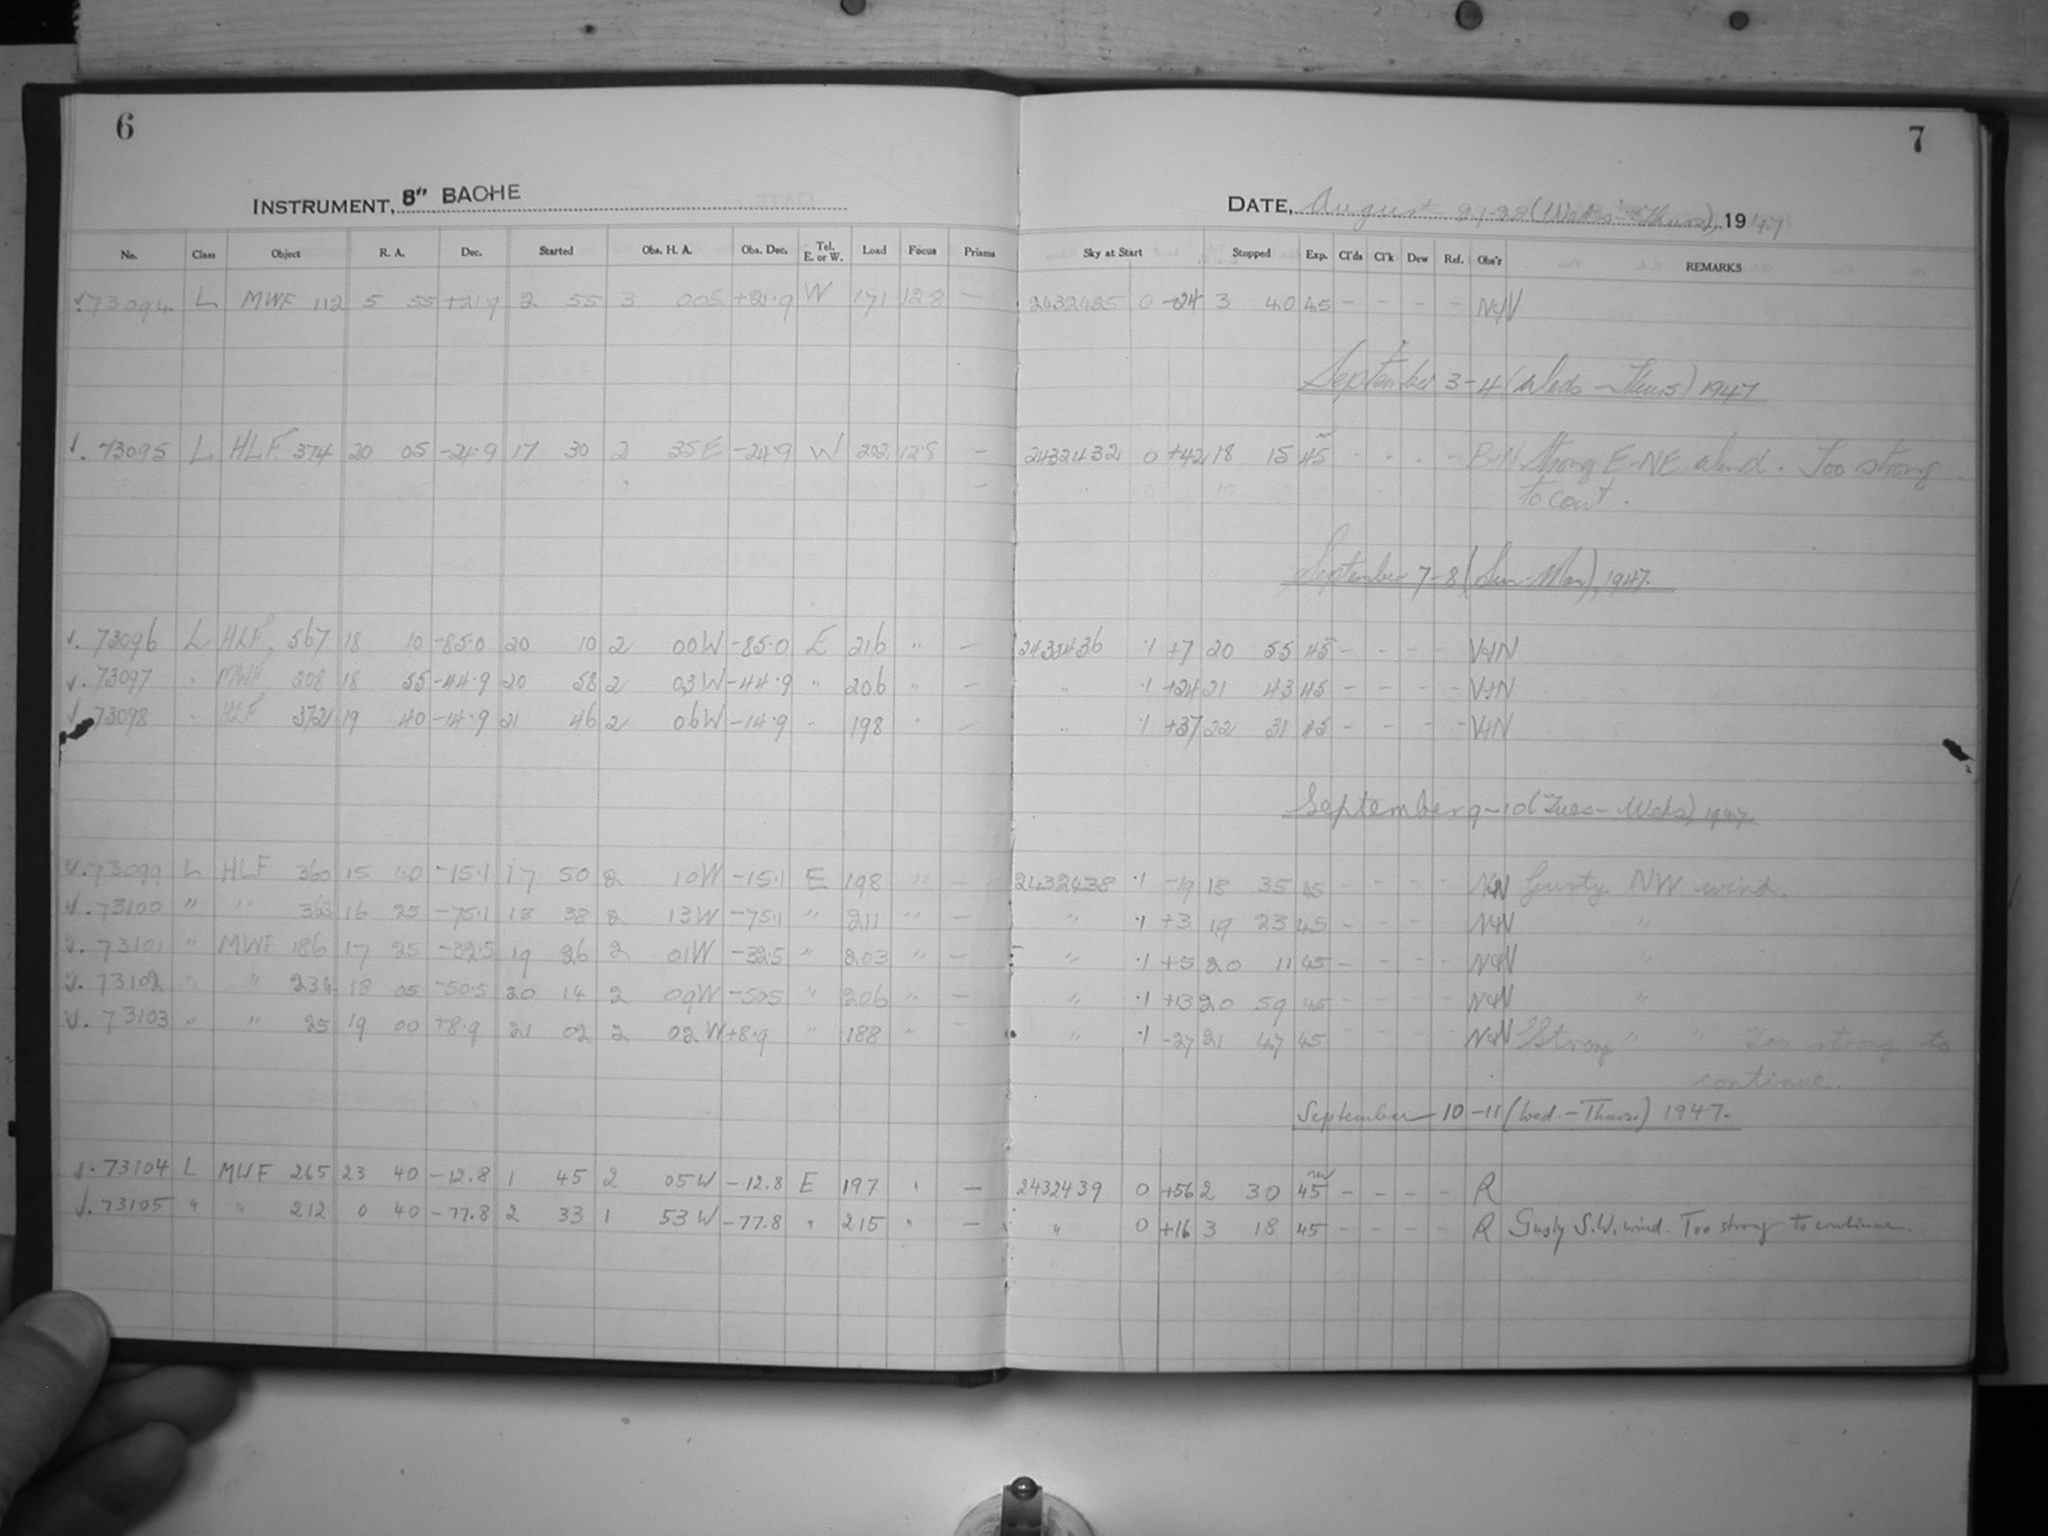 6
7
INSTRUMENT, 8" BACHE
DATE, August 27-28 (Weds-Thurs), 1947
No. Class Object R. A. Dec. Started Obs. H. A. Obs. Dec. Tel. E. or W. Load Focus Prisms Sky at Start Stopped Exp. Cl'ds Cl'k Dew Ref. Obs'r REMARKS
73094 L MWF 112 5 55 +21.9 2 55 3 00E +21.9 W 171 12.8 — 2432425 0 -24 3 40 45 - - - -
September 3-4 (Weds-Thurs) 1947
73095 L HLF 374 20 05 -24.9 17 30 2 35E -24.9 W 202 12.8 — 2432432 0 +42 18 15 45 - - - - Strong E-NE wind. Too strong
to cont.
September 7-8 (Sun-Mon), 1947.
73096 L HLF 567 18 10 -85.0 20 10 2 00W -85.0 E 216 " — 2432436 .1 +7 20 55 45 - - - -
73097 " MWF 208 18 55 -44.9 20 58 2 03W -44.9 " 206 " — " .1 +24 21 43 45 - - - -
73098 " HLF 372 19 40 -14.9 21 46 2 06W -14.9 " 198 " — " .1 +37 22 31 45 - - - -
September 9-10 (Tues-Weds) 1947
73099 L HLF 360 15 40 -15.1 17 50 2 10W -15.1 E 198 " — 2432438 .1 -19 18 35 45 - - - - Gusty NW wind.
73100 " " 363 16 25 -75.1 18 38 2 13W -75.1 " 211 " — " .1 +3 19 23 45 - - - - "
73101 " MWF 186 17 25 -32.5 19 26 2 01W -32.5 " 203 " — " .1 +5 20 11 45 - - - - "
73102 " " 234 18 05 -50.5 20 14 2 09W -50.5 " 206 " — " .1 +13 20 59 45 - - - - "
73103 " " 25 19 00 +8.9 21 02 2 02W +8.9 " 188 " " .1 -27 21 47 45 Strong " " Too strong to
continue.
September 10-11 (Wed.-Thurs.) 1947.
73104 L MWF 265 23 40 -12.8 1 45 2 05W -12.8 E 197 " — 2432439 0 +56 2 30 45 - - - - R
73105 " " 212 0 40 -77.8 2 33 1 53W -77.8 " 215 " — " 0 +16 3 18 45 - - - - R Gusty S.W. wind. Too strong to continue.